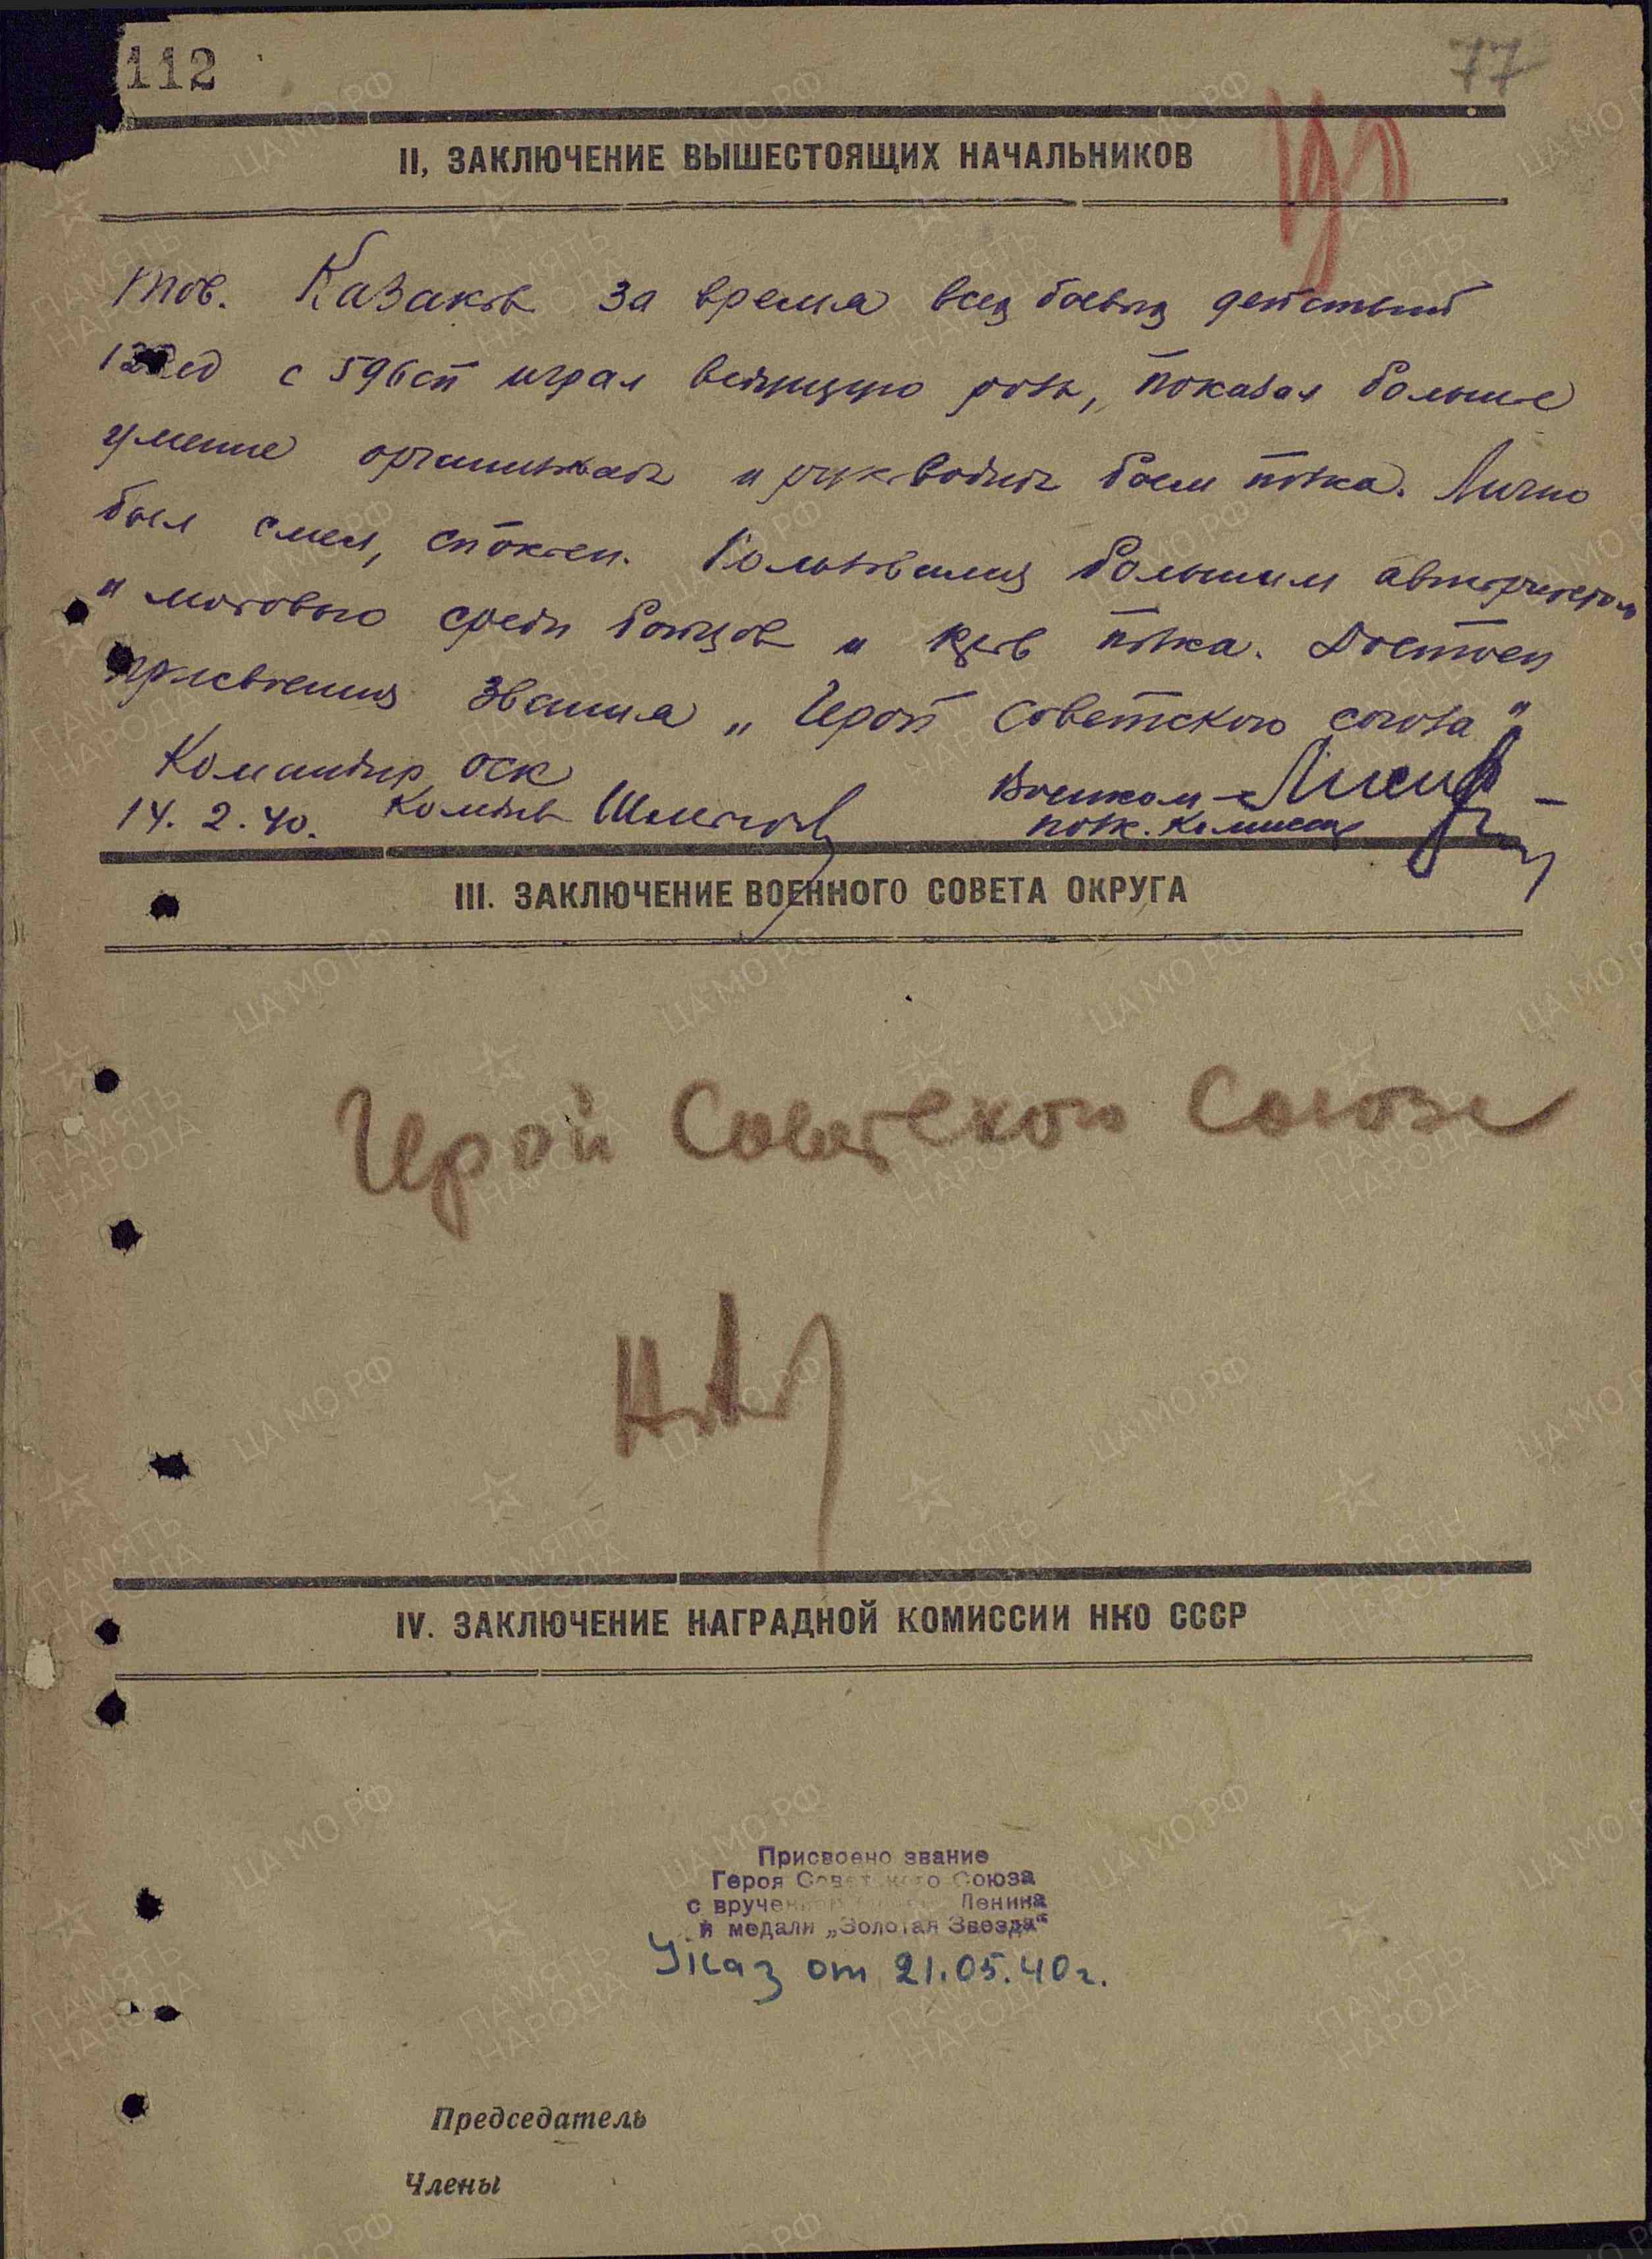 112
77
II, ЗАКЛЮЧЕНИЕ ВЫШЕСТОЯЩИХ НАЧАЛЬНИКОВ
тов. Казаков за время всех боевых действий
с 596 сп играл ведущую роль, показал большое
умение организовать и руководить боем полка. Лично
был смел, спокоен. Пользовался большим авторитетом
и любовью среди бойцов и полка. Достоин
присвоения звания „Герой Советского союза"
Командир оск
Военком
14. 2. 40. Комдив
полк. Комиссар
III. ЗАКЛЮЧЕНИЕ ВОЕННОГО СОВЕТА ОКРУГА
Герой Советского Союза
IV. ЗАКЛЮЧЕНИЕ НАГРАДНОЙ КОМИССИИ НКО СССР
Присвоено звание
Героя Советского Союза
с вручением Ленина
и медали „Золотая Звезда"
Указ от 21.05.40г.
Председатель
Члены
ЦА МО РФ
ПАМЯТЬ
НАРОДА